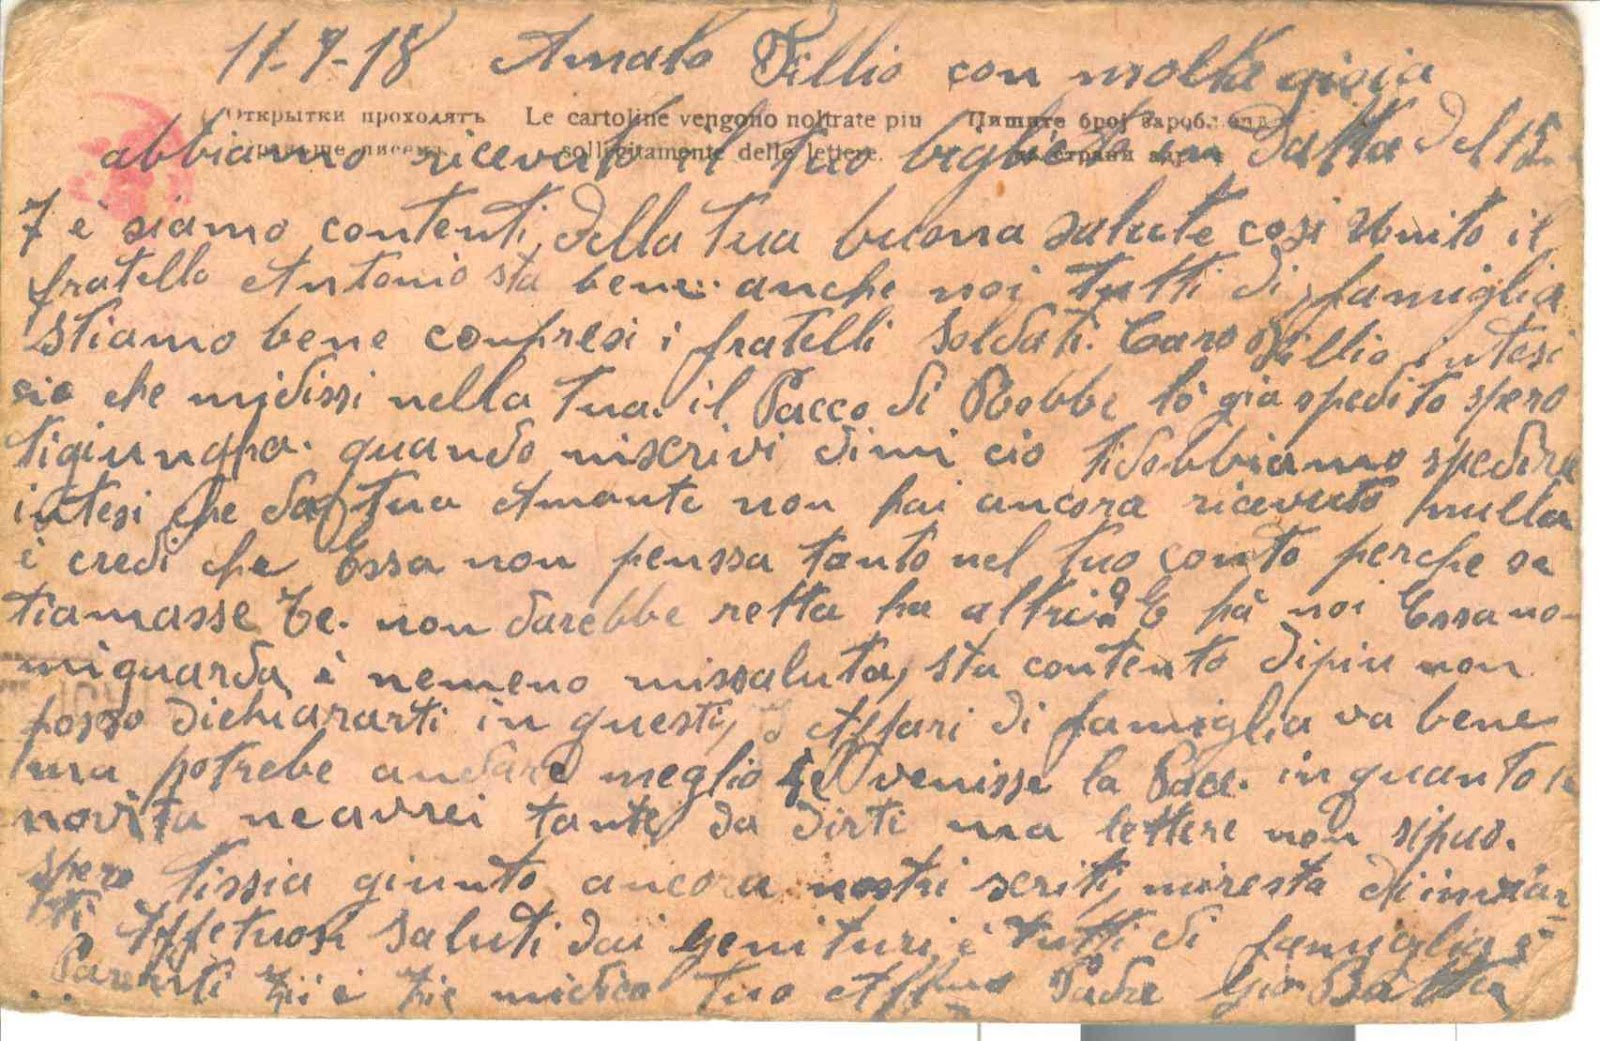 11-9-18 Amato Fillio con molta gioia
Открытки проходятъ Le cartoline vengono noltrate piu Пишите број
sollicitamente delle lettere. страни
abbiamo ricevuto il tuo biglieto in datta del 15
7 è siamo contenti della tua buona salute cosi Unito il
fratello Antonio sta bene. anche noi tutti di famiglia
stiamo bene compresi i fratelli soldati. Caro Fillio intesi
cio che midissi nella tua. il Pacco di Robbe lò gia spedito spero
tigiungha. quando miscrivi dimi cio tidobbiamo spedire
intesi che dal tua Amante non hai ancora ricevuto nulla
è credi che Essa non penssa tanto nel tuo conto perche se
tiamasse Te. non darebbe retta ha altri. E hà noi Essa no-
miguarda è nemeno missaluta, sta contento dipiu non
posso dichiararti in questi, Affari di famiglia va bene
ma potrebe andare meglio se venisse la Pace. in quanto
novita neavrei tante da dirti ma lettere non sipuo.
spero tissia giunto ancora nostri scriti, miresta di inviar-
ti Affetuosi saluti dai genituri è tutti di famiglia è
Parenti zii è zie midico tuo Affmo Padre Gio Batta